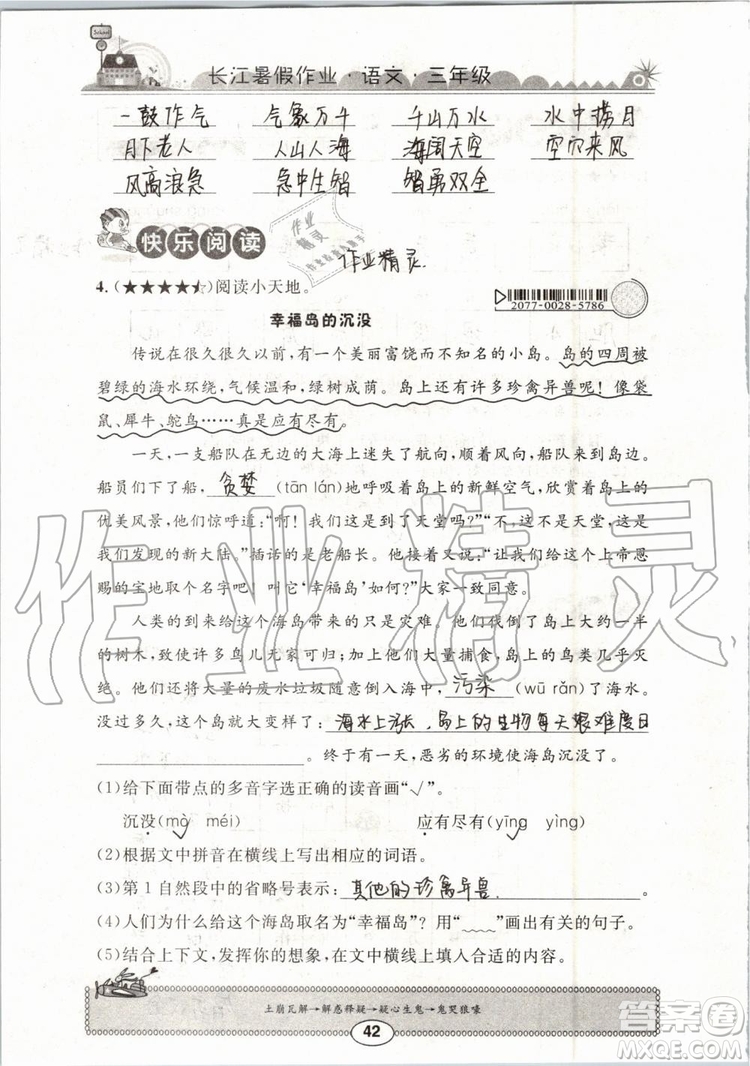 School
长江暑假作业·语文·三年级
一鼓作气 气象万千 千山万水 水中捞月
月下老人 人山人海 海阔天空 空穴来风
风高浪急 急中生智 智勇双全
快乐阅读
作业精灵
作业精灵
4.(★★★★⯪)阅读小天地。
2077-0028-5786
幸福岛的沉没
传说在很久很久以前,有一个美丽富饶而不知名的小岛。岛的四周被
碧绿的海水环绕,气候温和,绿树成荫。岛上还有许多珍禽异兽呢!像袋
鼠、犀牛、鸵鸟……真是应有尽有。
一天,一支船队在无边的大海上迷失了航向,顺着风向,来到了岛边。
船员们下了船, 贪婪 (tān lán)地呼吸着岛上的新鲜空气,欣赏着岛上的
优美风景,他们惊呼道:“啊!我们来到了天堂吗?”“不,这不是天堂,这是
我们发现的新大陆。”插话的是老船长。他接着又说:“让我们给这个上帝恩
赐的宝地取个名字吧!叫它‘幸福岛’如何?”大家一致同意。
人类的到来给这个海岛带来的只是灾难。他们砍倒了岛上大约二分之一
的树木,致使许多鸟儿无家可归;加上他们大量捕食,岛上的鸟类几乎灭
绝。他们还将大量的废水垃圾随意倒入海中, 污染 (wū rǎn)了海水。
没过多久,这个岛就大变样了: 海水上涨,岛上的生物每天艰难度日
。终于有一天,恶劣的环境使海岛沉没了。
(1)给下面带点的多音字选正确的读音画“√”。
沉没(mò√ méi) 应有尽有(yīng√ yìng)
(2)根据文中拼音在横线上写出相应的词语。
(3)第1自然段中的省略号表示: 其他的珍禽异兽
(4)人们为什么给这个海岛取名为“幸福岛”?用“﹏﹏”画出有关的句子。
(5)结合上下文,发挥你的想象,在文中横线上填入合适的内容。
土崩瓦解→解惑释疑→疑心生鬼→鬼哭狼嚎
42
作业精灵
答案卷
MXQE.COM